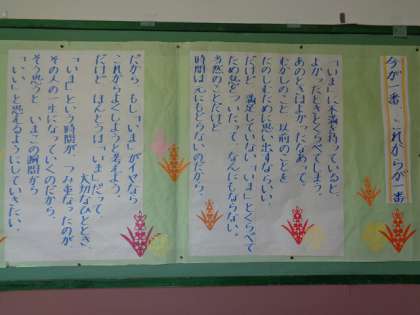 今が一番 これからが一番
「いま」に不満を持っていると、
よかったときとくらべてしまう。
あのときはよかったなあって
むかしのこと 以前のことを
たのしむために思い出すならいい。
だけど 満足していない「いま」とくらべて
ため息をついたって なんにもならない。
当然のことだけど
時間は元にもどらないのだから。
だから もし「いま」がイヤなら
これからよくしようと考えよう。
だけど ほんとうは「いま」だって 大切なひととき。
「いま」という時間が つみ重なったのが
その人の一生になっていくのだから、
そう思うと いまこの瞬間から
「いい」と思えるようにしていきたい。